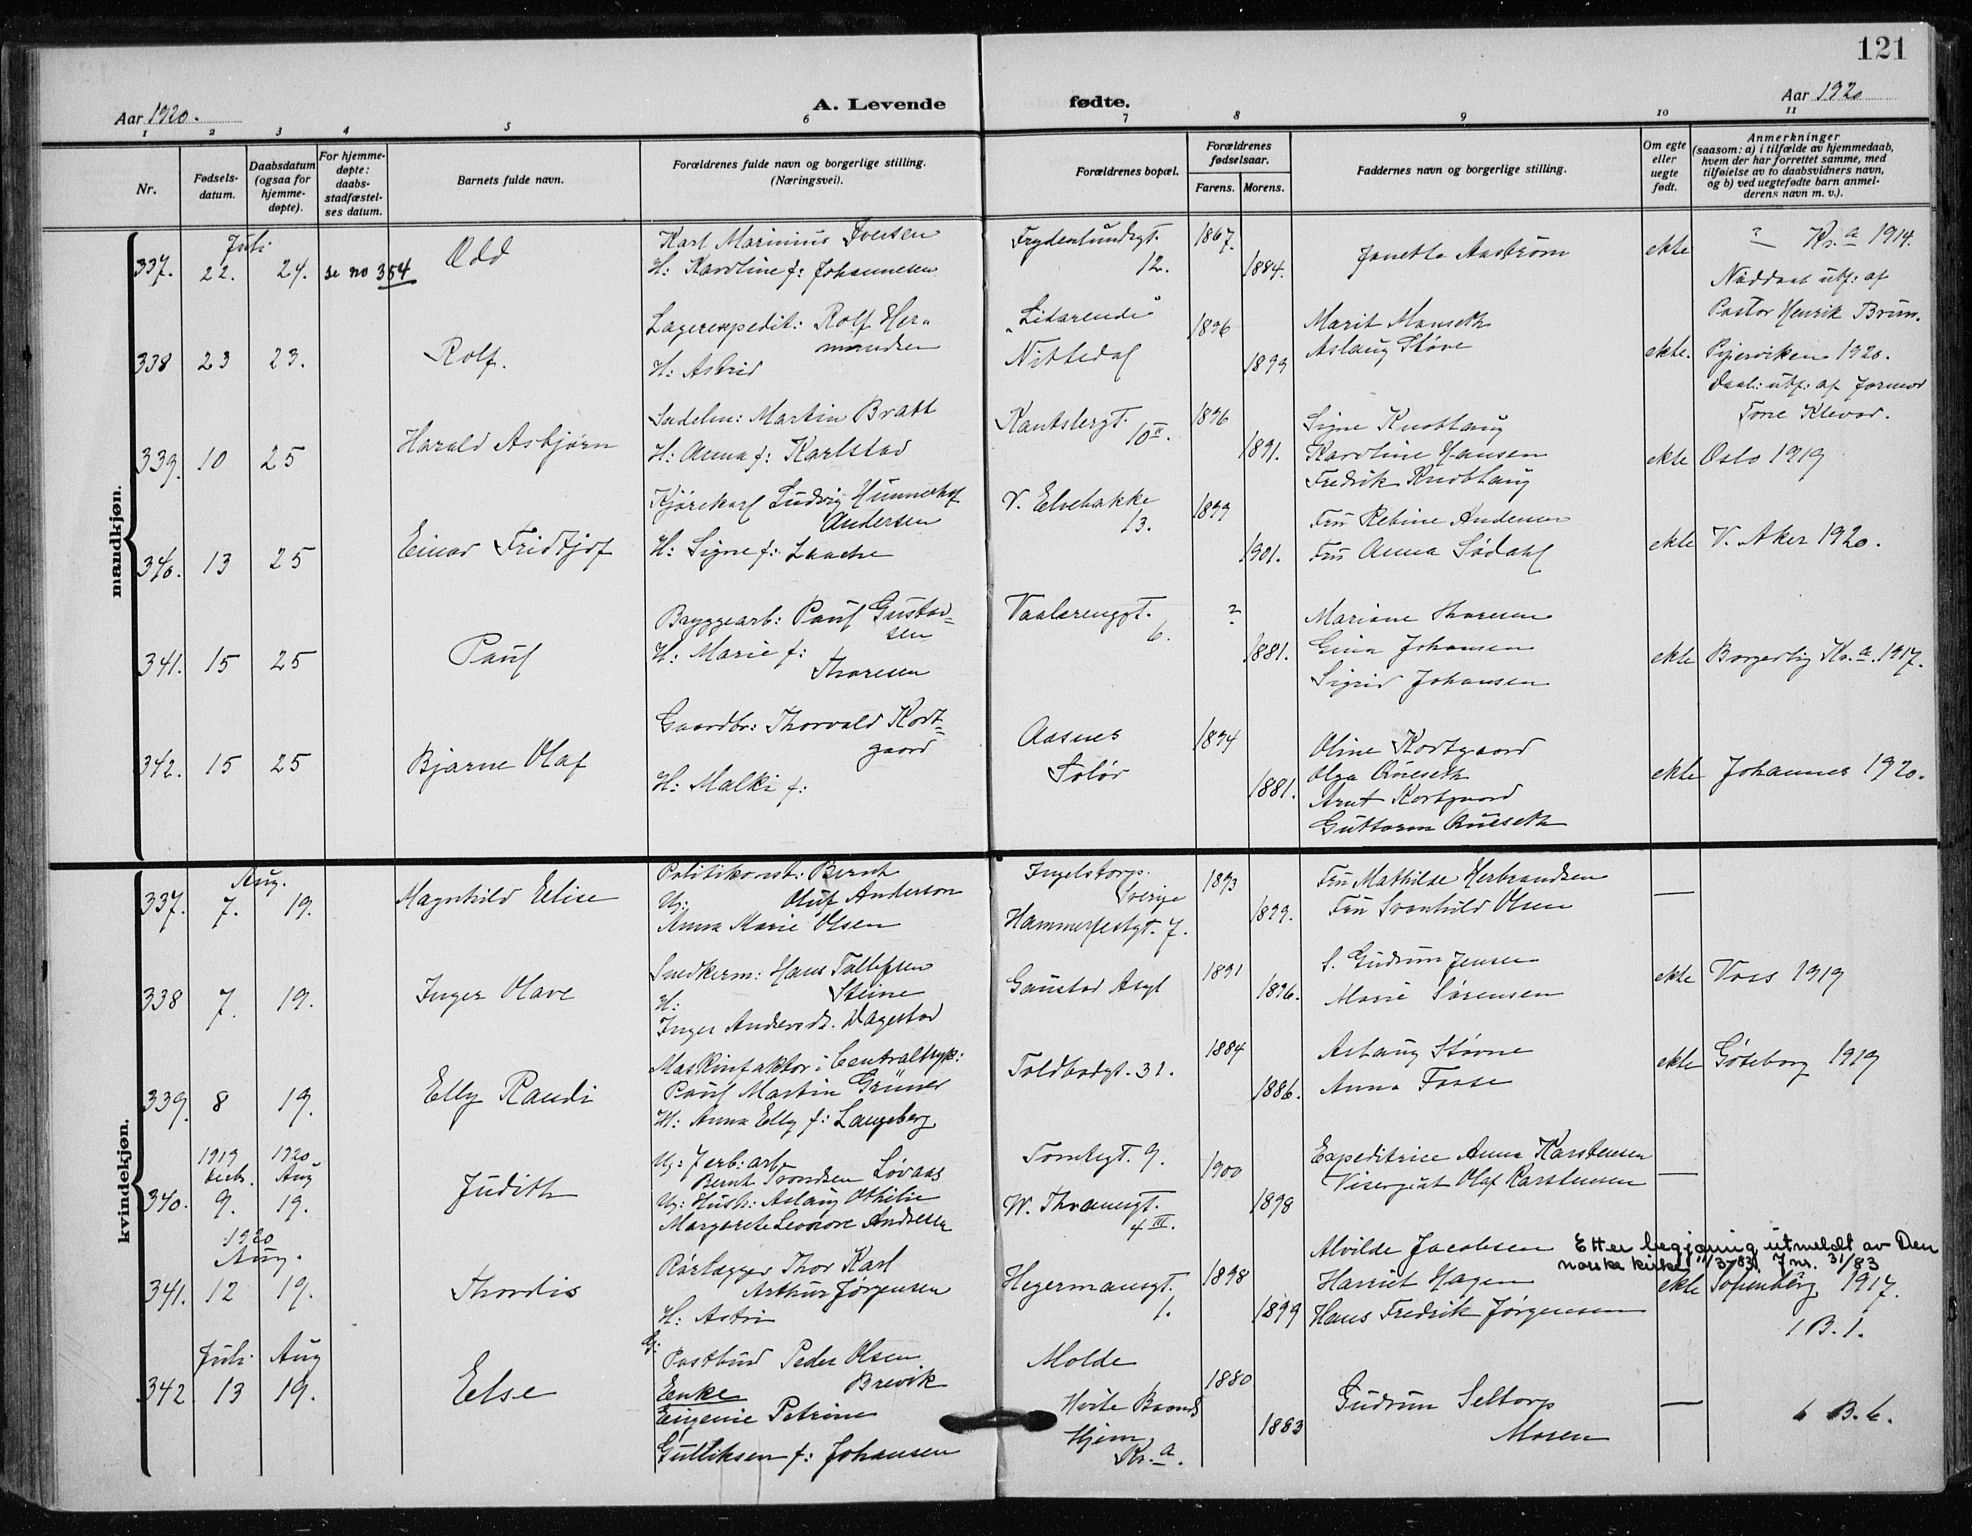 121
Aar 1920.
A. Levende
fødte.
Aar 1920
1 2 3 4 5 6 7 8 9 10 11
Nr.
Fødsels-
datum.
Daabsdatum
(ogsaa for
hjemme-
døpte).
For hjemme-
døpte:
daabs-
stadfæstel-
ses datum.
Barnets fulde navn.
Forældrenes fulde navn og borgerlige stilling.
(Næringsvei).
Forældrenes bopæl.
Forældrenes
fødselsaar.
Farens. Morens.
Faddernes navn og borgerlige stilling.
Om egte
eller
uegte
født.
Anmerkninger
(saasom: a) i tilfælde av hjemmedaab,
hvem der har forrettet samme, med
tilføielse av to daabsvidners navn,
og b) ved uegtefødte barn anmel-
derens navn m. v.).
mandkjøn.
Juli
337. 22. 24. se no 354 Odd
Karl Marinius Iversen
H: Karoline f: Johannesen
Frydenlundsgt.
12.
1867. 1884.
Janette Aastrøm
ekte
? Kr.a 1914.
Nøddaab utf: af
Pastor Henrik Brun.
338 23 23. Rolf.
Lagerexpedit: Rolf Her-
mandsen
H: Astrid
"Lidarende"
Nittedal
1896 1899
Marit Manseth
Aslaug Støve
ekte.
Piperviken 1920.
Daab: utf: af Jormor
Tone Klevar.
339. 10 25 Harald Asbjørn
Sadelm: Martin Bratt
H: Anna f: Karlstad
Kantslergt.
10 II.
1896 1891.
Signe Knoblaug
Karoline Hansen
Fredrik Knoblaug
ekte Oslo 1919
340. 13 25 Einar Fridtjof
Kjørekarl Ludvig
Andersen
H: Signe f: Laache
V. Elvebakke
13.
1899 1901.
Fru Rebine Andersen
Fru Anna Sødahl
ekte V. Aker 1920.
341. 15 25 Paul
Bryggearb: Paul Gustav-
sen
H: Marie f:
Thoresen
Vaalerenggt.
6.
? 1881.
Mariane Thoresen
Gina Johansen
Sigrid Johansen
ekte Borgerlig Kr.a. 1917.
342. 15 25 Bjarne Olaf
Gaardbr: Thorvald Kort-
gaard
H: Malki f:
Aasnes
Solør
1894 1881.
Oline Kortgaard
Olga
Arnt Kortgaard
Guttorm
ekte Johannes 1920.
kvindekjøn.
Aug.
337. 7. 19. Magnhild Elise
Politikonst: Bernt
Oluf Anderson
Ug:
Anna Marie Olsen
Ingelstorp.
Sverige
Hammerfestgt. 7.
1893 1899.
Fru Mathilde Herbrandsen
Fru Svanhild Olsen
—
338 7. 19. Inger Olave
Snedkerm: Hans Tollefsen
Steine
H:
Inger Andersdt. Dagestad
Gaustad Asyl
1891 1896.
S. Gudrun Jensen
Marie Sørensen
ekte Voss 1919
339. 8 19. Elly Randi
Maskinfaktor i Centraltryk:
Paul Martin Grüner
H: Anna Elly f: Langeberg
Toldbodgt. 31.
1884 1886.
Aslaug Støvne
Anna Fosse
ekte Gøteborg 1919
1919 1920
decbr. Aug
340. 9. 19. Judith
Ug: Jerb: arb.
Bernt Trondsen Løvaas
Ug: Hush: Aslaug Othilie
Margarete Leonore Andresen
Tomtegt. 9.
W. Thranesgt.
4 III.
1900 1898
Expeditrice Anna Karstensen
Visergut Olaf Karstensen
—
1920
Aug.
341. 12 19. Thordis
Rørlægger Thor Karl
Arthur Jørgensen
H: Astri
Hegermansgt.
1.
1898 1899
Alvilde Jacobsen
Harriet Hagen
Hans Fredrik Jørgensen
Etter begjæring utmeldt av Den
norske kirke 11/3 83. Jnr. 31/83
ekte Sofienberg 1917.
1 B. 1.
Juli Aug
342 13 19. Else
Ug: Postbud Peder Olsen
Brevik
Enke
Eugenie Petrine
Gulliksen f: Johansen
Molde
Hvite Baands
Hjem
Kr.a.
1880 1883
Gudrun Seltorp
Mosen
—
6 B. 6.